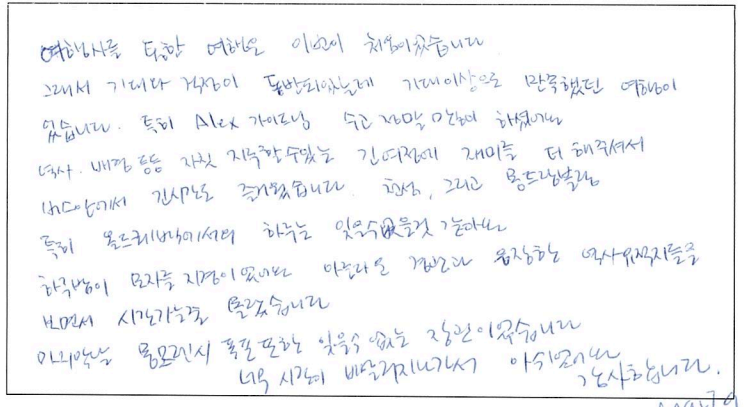 여행사를 통한 여행은 이번이 처음이었습니다
그래서 기대와 걱정이 동반되었는데 기대이상으로 만족했던 여행이
었습니다. 특히 Alex 가이드님 수고 정말 많이 하셨어요
역사. 배경 등등 자칫 지루할수있는 긴여정에 재미를 더 해주셔서
버스안에서 긴시간도 즐거웠습니다. 천섬, 그리고 몽트랑블랑
특히 올드퀘벡에서의 하루는 잊을수없을것 같아요
하룻밤이 모자를 지경이었어요 아름다운 경관과 웅장한 역사유적지들을
보면서 시간가는줄 몰랐습니다
마지막날 몽모렌시 폭포 또한 잊을수 없는 장관이었습니다
너무 시간이 빨리지나가서 아쉬웠어요
감사합니다.